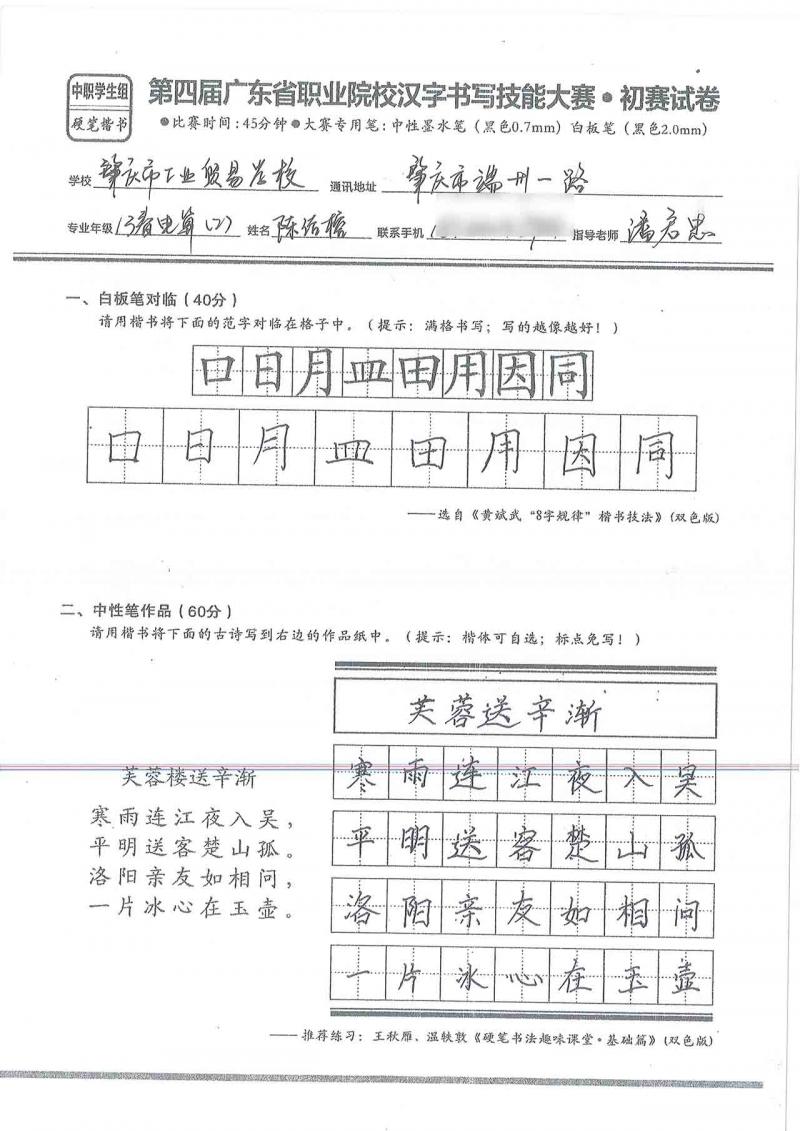 中职学生组
硬笔楷书
第四届广东省职业院校汉字书写技能大赛•初赛试卷
●比赛时间:45分钟●大赛专用笔:中性墨水笔(黑色0.7mm)白板笔(黑色2.0mm)
学校 肇庆市工业贸易学校 通讯地址 肇庆市端州一路
专业年级 13春电算(2) 姓名 陈佑榕 联系手机 指导老师 潘启忠
一、白板笔对临(40分)
请用楷书将下面的范字对临在格子中。(提示:满格书写;写的越像越好!)
口日月皿田用因同
口日月皿田用因同
——选自《黄斌武“8字规律”楷书技法》(双色版)
二、中性笔作品(60分)
请用楷书将下面的古诗写到右边的作品纸中。(提示:楷体可自选;标点免写!)
芙蓉楼送辛渐
寒雨连江夜入吴,
平明送客楚山孤。
洛阳亲友如相问,
一片冰心在玉壶。
芙蓉送辛渐
寒雨连江夜入吴
平明送客楚山孤
洛阳亲友如相问
一片冰心在玉壶
——推荐练习:王秋雁、温轶敦《硬笔书法趣味课堂·基础篇》(双色版)